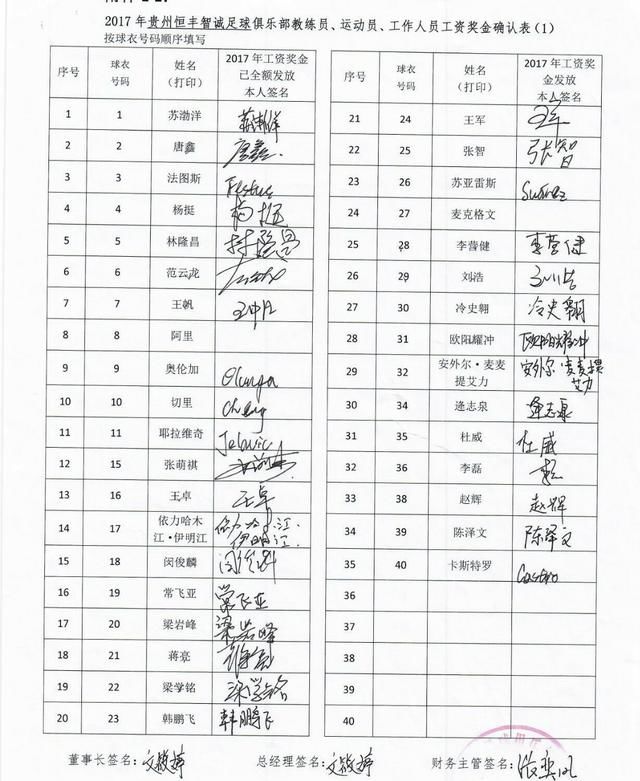 2017 年贵州恒丰智诚足球俱乐部教练员、运动员、工作人员工资奖金确认表（1）
按球衣号码顺序填写
序号 球衣号码 姓名（打印） 2017 年工资奖金已全额发放本人签名
1 1 苏渤洋
2 2 唐鑫 唐鑫
3 3 法图斯 Festus
4 4 杨挺 杨挺
5 5 林隆昌 林隆昌
6 6 范云龙
7 7 王帆 王帆
8 8 阿里
9 9 奥伦加 Olunga
10 10 切里 Chery
11 11 耶拉维奇 Jelavic
12 15 张萌祺
13 16 王卓 王卓
14 17 依力哈木江·伊明江 依力哈木江·伊明江
15 18 闵俊麟 闵俊麟
16 19 常飞亚 常飞亚
17 20 梁岩峰 梁岩峰
18 21 蒋亮
19 22 梁学铭 梁学铭
20 23 韩鹏飞 韩鹏飞
序号 球衣号码 姓名（打印） 2017 年工资奖金发放本人签名
21 24 王军 王军
22 25 张智 张智
23 26 苏亚雷斯 Suárez
24 27 麦克格文
25 28 李营健 李营健
26 29 刘浩 刘浩
27 30 冷史翱 冷史翱
28 31 欧阳耀冲 欧阳耀冲
29 32 安外尔·麦麦提艾力 安外尔·麦麦提艾力
30 34 逄志泉
31 35 杜威 杜威
32 36 李磊 李磊
33 38 赵辉 赵辉
34 39 陈泽文 陈泽文
35 40 卡斯特罗 Castro
36
37
38
39
40
董事长签名： 总经理签名： 财务主管签名：